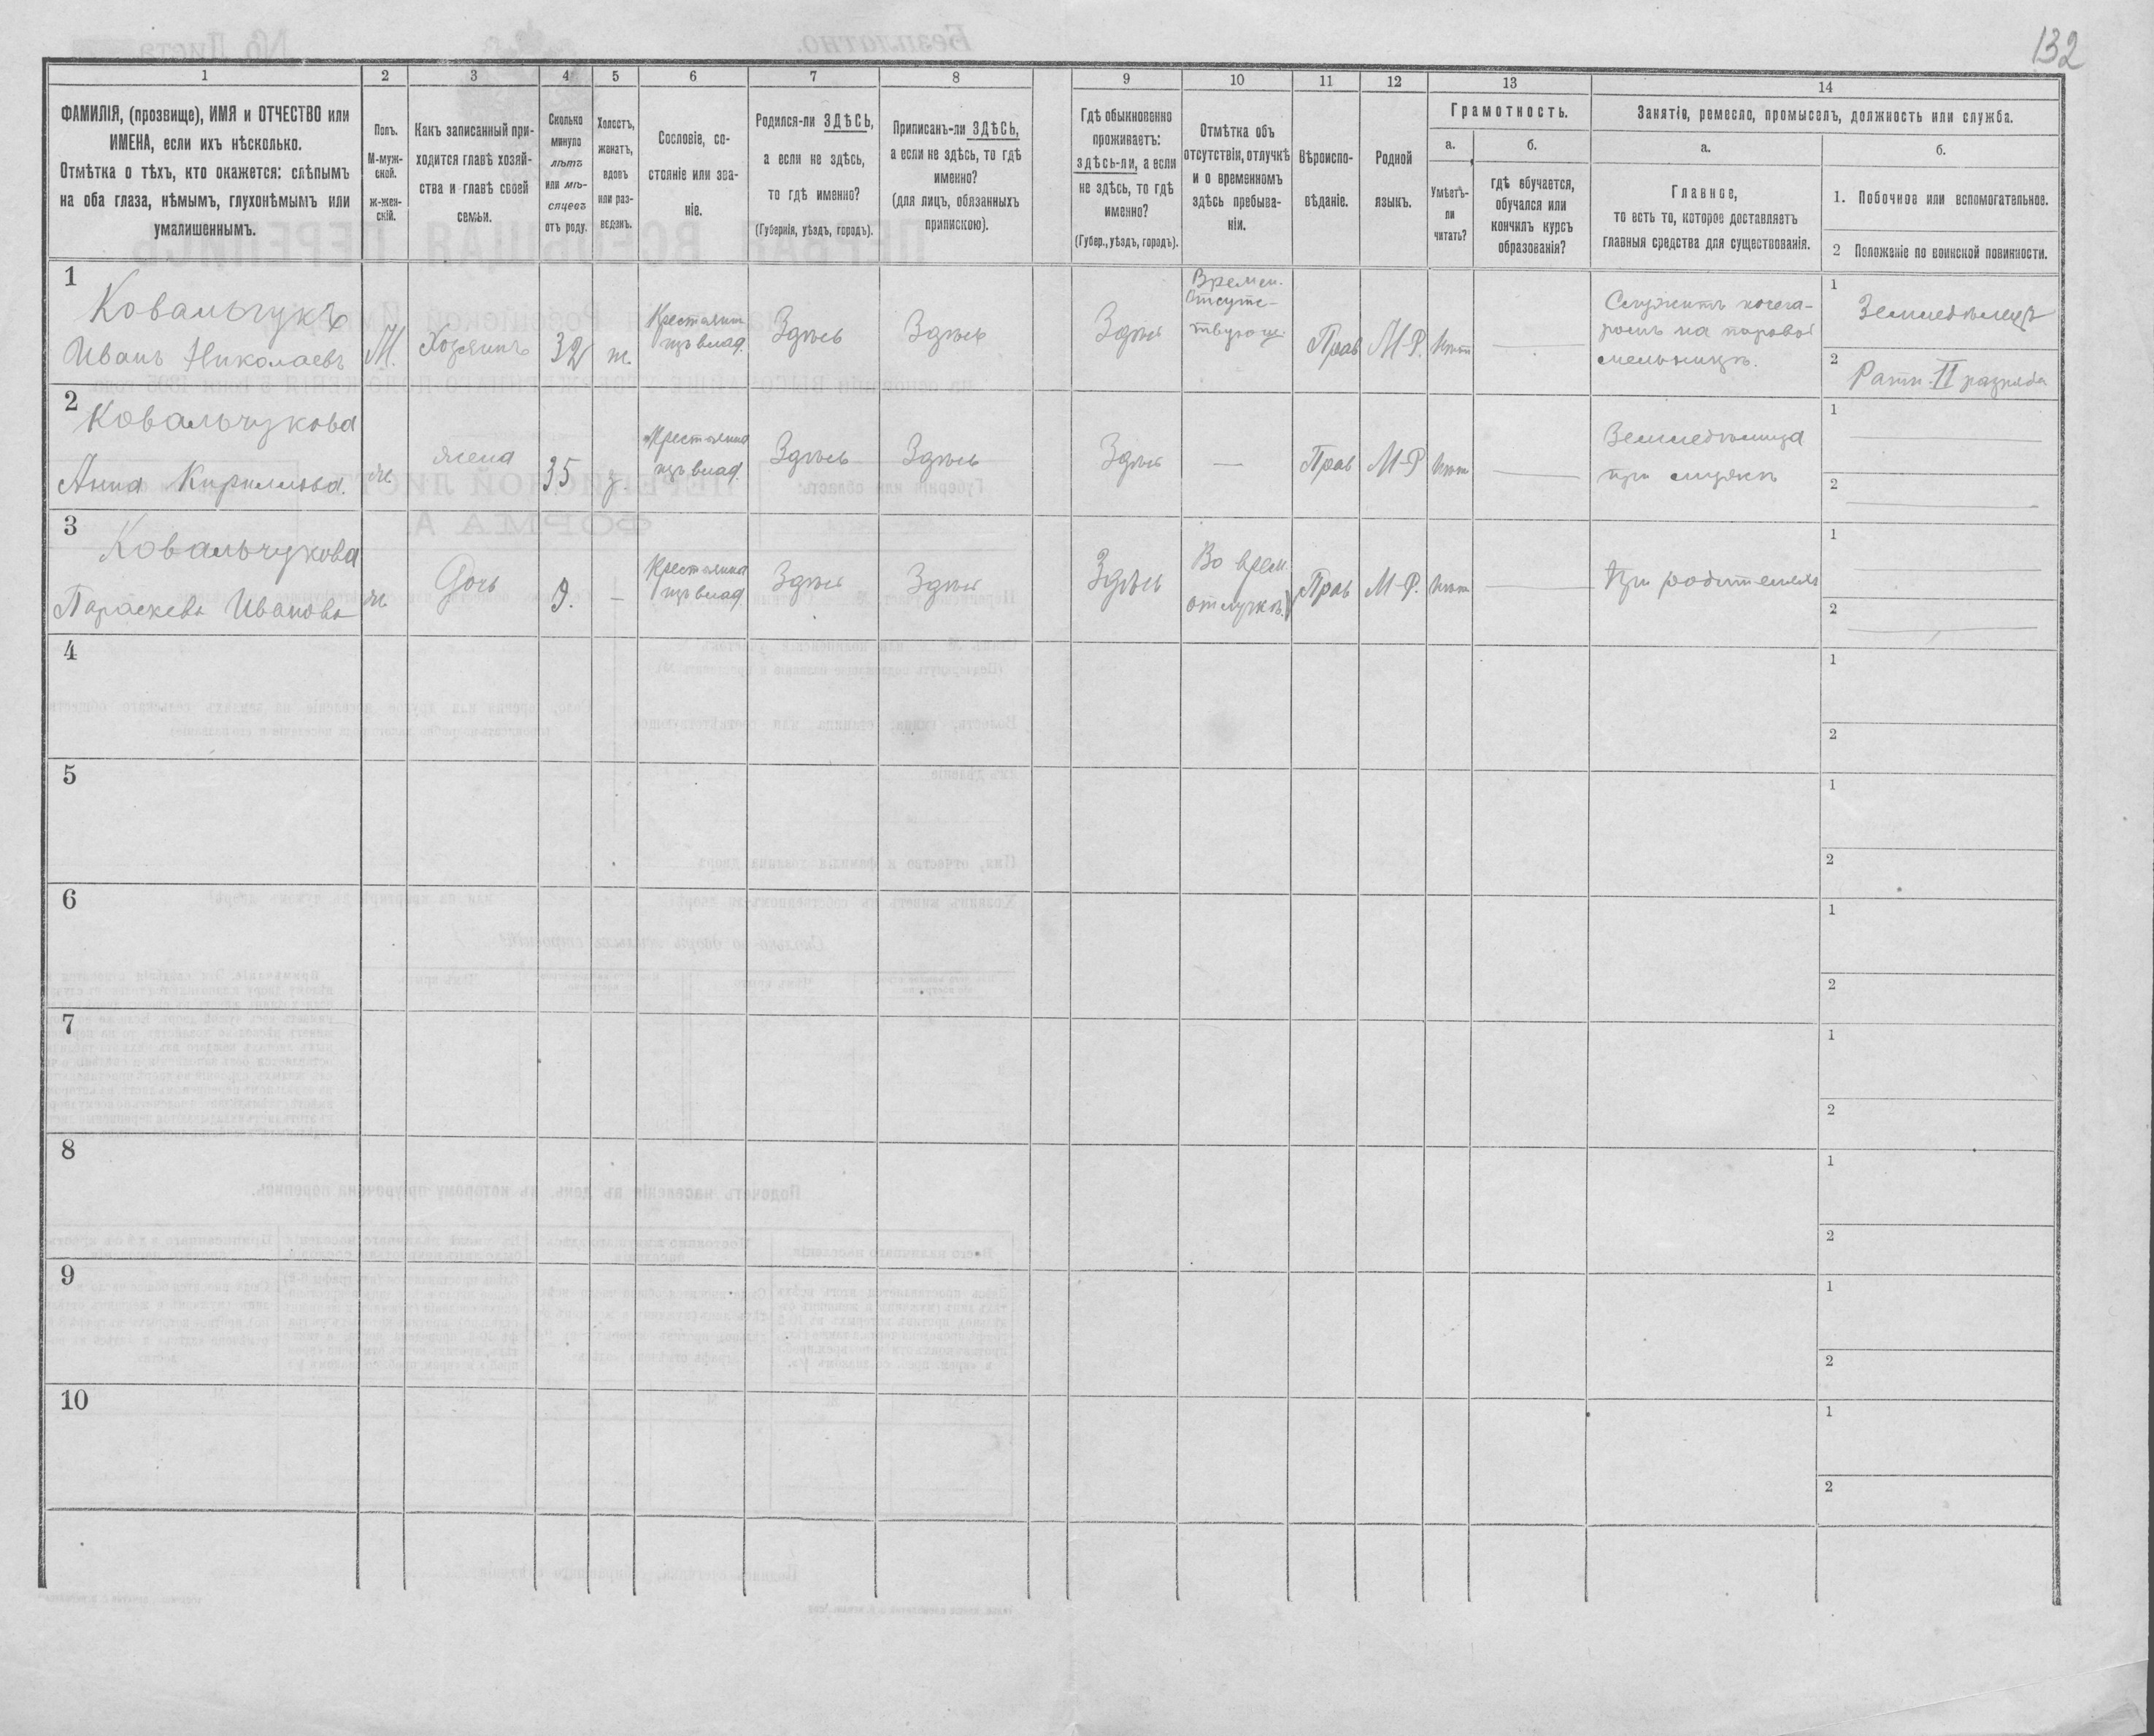 132
1 2 3 4 5 6 7 8 9 10 11 12 13 14
ФАМИЛІЯ, (прозвище), ИМЯ и ОТЧЕСТВО или
ИМЕНА, если ихъ нѣсколько.
Отмѣтка о тѣхъ, кто окажется: слѣпымъ
на оба глаза, нѣмымъ, глухонѣмымъ или
умалишеннымъ.
Полъ.
М-муж-
ской.
ж-жен-
скій.
Какъ записанный при-
ходится главѣ хозяй-
ства и главѣ своей
семьи.
Сколько
минуло
лѣтъ
или мѣ-
сяцевъ
отъ роду.
Холостъ,
женатъ,
вдовъ
или раз-
веденъ.
Сословіе, со-
стояніе или зва-
ніе.
Родился-ли ЗДѢСЬ,
а если не здѣсь,
то гдѣ именно?
(Губернія, уѣздъ, городъ).
Приписанъ-ли ЗДѢСЬ,
а если не здѣсь, то гдѣ
именно?
(для лицъ, обязанныхъ
припискою).
Гдѣ обыкновенно
проживаетъ:
здѣсь-ли, а если
не здѣсь, то гдѣ
именно?
(Губер., уѣздъ, городъ).
Отмѣтка объ
отсутствіи, отлучкѣ
и о временномъ
здѣсь пребыва-
ніи.
Вѣроиспо-
вѣданіе.
Родной
языкъ.
Грамотность.
а.
Умѣетъ-
ли
читать?
б.
гдѣ обучается,
обучался или
кончилъ курсъ
образованія?
Занятіе, ремесло, промыселъ, должность или служба.
а.
Главное,
то есть то, которое доставляетъ
главныя средства для существованія.
б.
1. Побочное или вспомогательное.
2 Положеніе по воинской повинности.
1
Ковальчукъ
Иванъ Николаевъ
М.
Хозяинъ
32
ж.
Крестьянин
изъ влад.
Здѣсь
Здѣсь
Здѣсь
Времен.
Отсутс-
твующ.
Прав
М-Р.
Нѣтъ
Служитъ кочега-
ромъ на паровой
мельницѣ.
1
Земледѣлецъ
2
Ратн. II разряда
2
Ковальчукова
Анна Кирилова.
ж.
жена
35
з.
Крестьянка
изъ влад.
Здѣсь
Здѣсь
Здѣсь
—
Прав
М-Р
Нѣтъ
Земледѣлица
при мужѣ
1
2
3
Ковальчукова
Параскева Иванова
ж.
Дочь
9.
—
Крестьянка
изъ влад.
Здѣсь
Здѣсь
Здѣсь
Во врем.
отлучкѣ.
Прав
М-Р.
Нѣтъ
при родителяхъ
1
2
4
1
2
5
1
2
6
1
2
7
1
2
8
1
2
9
1
2
10
1
2